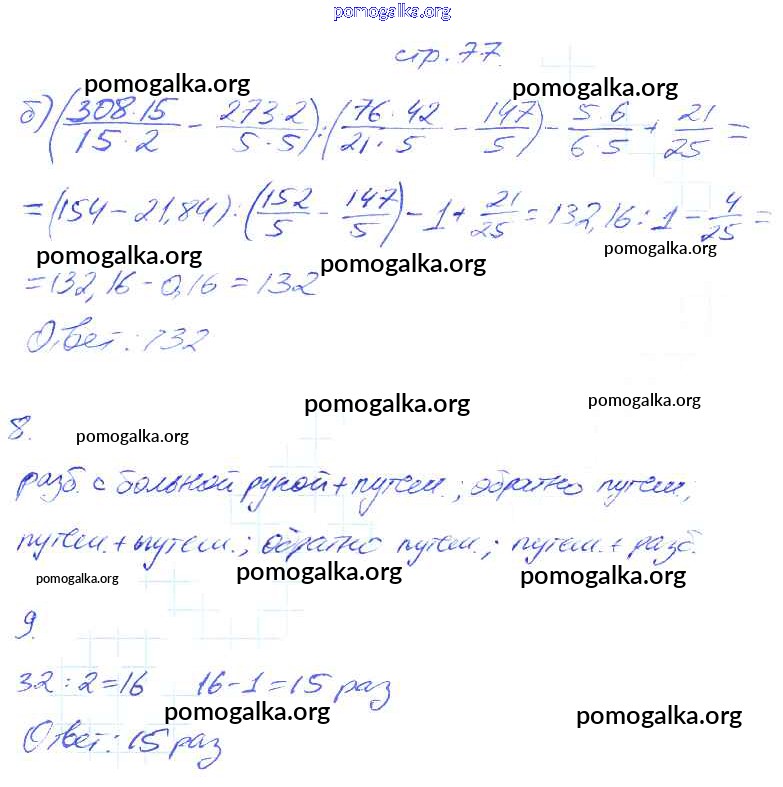 pomogalka.org
стр. 77.
pomogalka.org pomogalka.org
б) (308·15/15·2 − 273·2/5·5) : (76·42/21·5 − 147/5) − 5·6/6·5 + 21/25 =
= (154 − 21,84) : (152/5 − 147/5) − 1 + 21/25 = 132,16 : 1 − 4/25 =
pomogalka.org pomogalka.org pomogalka.org
= 132,16 − 0,16 = 132
Ответ: 132
pomogalka.org pomogalka.org
8.
pomogalka.org
разб. с больной рукой + путеш.; обратно путеш.;
путеш. + путеш.; обратно путеш.; путеш. + разб.
pomogalka.org pomogalka.org pomogalka.org
9.
32 : 2 = 16 16 − 1 = 15 раз
pomogalka.org pomogalka.org
Ответ: 15 раз